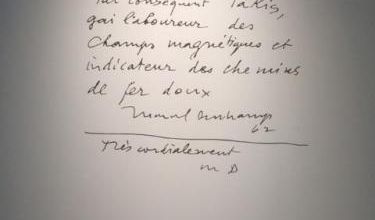 Par conséquent Takis,
gai laboureur des
Champs magnétiques et
indicateur des chemins
de fer doux
Marcel Duchamp
62
très cordialement
M D